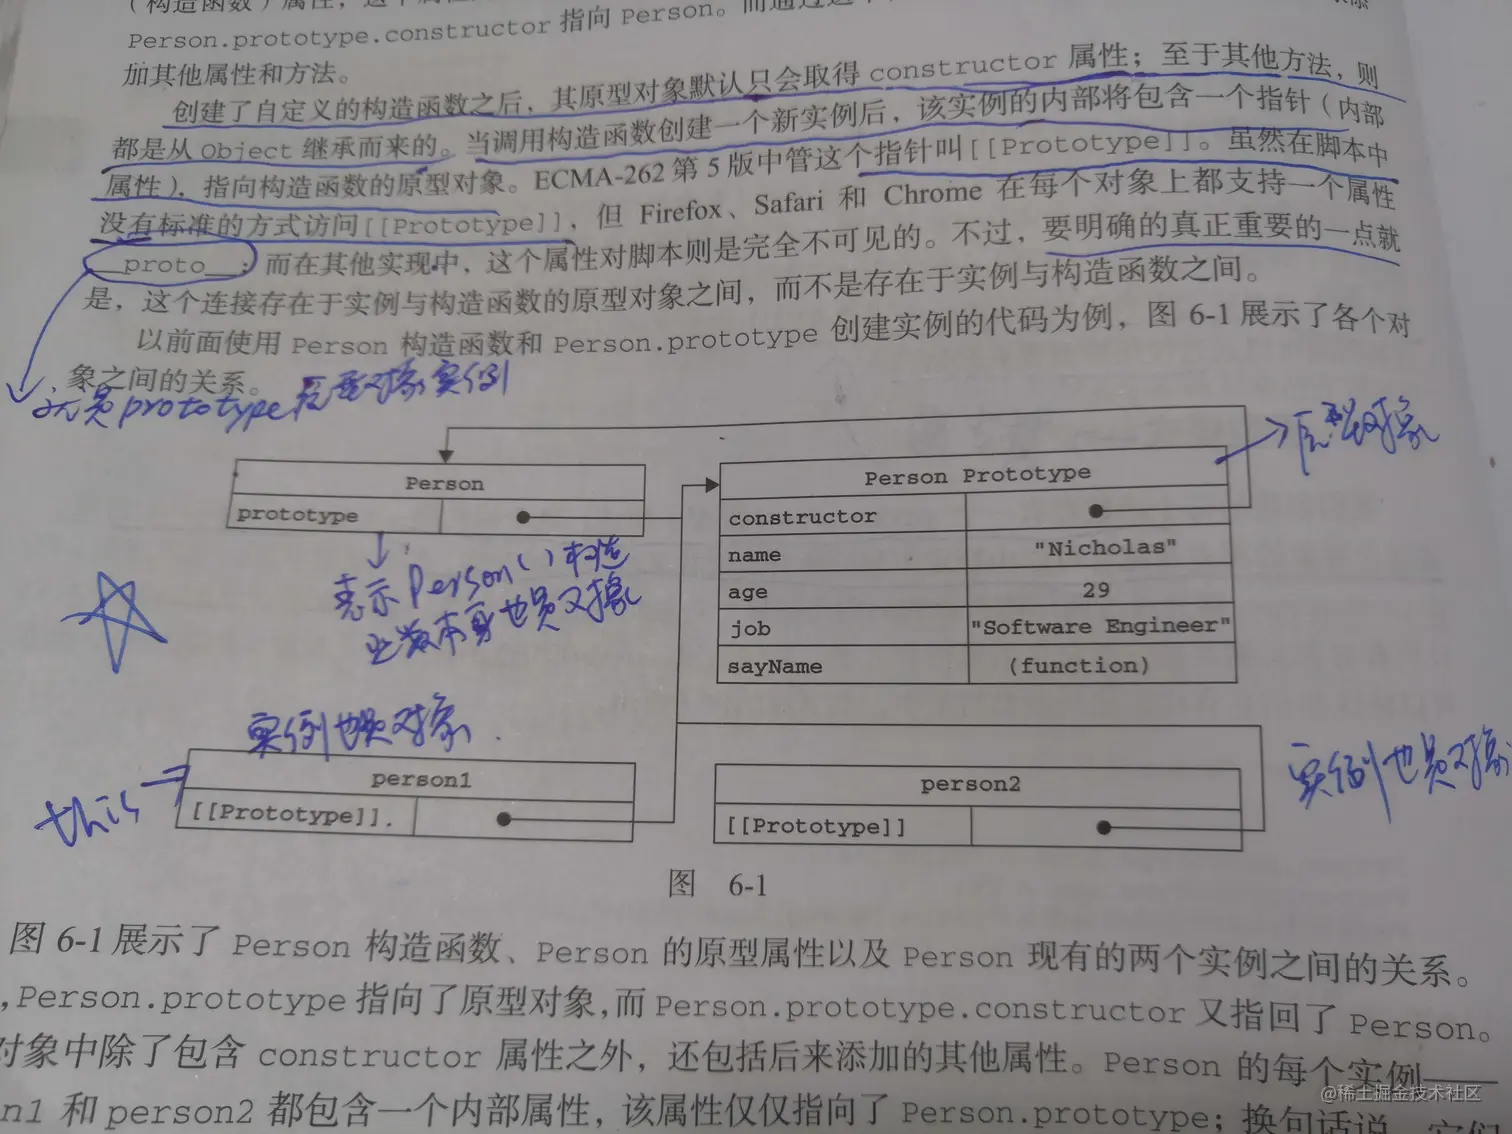 (构造函数)属性，这个属性
Person.prototype.constructor 指向 Person。而通过这个
加其他属性和方法。
创建了自定义的构造函数之后，其原型对象默认只会取得 constructor 属性；至于其他方法，则
都是从 Object 继承而来的。当调用构造函数创建一个新实例后，该实例的内部将包含一个指针（内部
属性），指向构造函数的原型对象。ECMA-262 第 5 版中管这个指针叫[[Prototype]]。虽然在脚本中
没有标准的方式访问[[Prototype]]，但 Firefox、Safari 和 Chrome 在每个对象上都支持一个属性
__proto__；而在其他实现中，这个属性对脚本则是完全不可见的。不过，要明确的真正重要的一点就
是，这个连接存在于实例与构造函数的原型对象之间，而不是存在于实例与构造函数之间。
以前面使用 Person 构造函数和 Person.prototype 创建实例的代码为例，图 6-1 展示了各个对
象之间的关系。
prototype 原型对象实例
原型对象
Person
prototype
Person Prototype
constructor
name "Nicholas"
age 29
job "Software Engineer"
sayName (function)
表示 Person() 构造
函数本身也是对象
实例也是对象
this
person1
[[Prototype]]
person2
[[Prototype]]
实例也是对象
图 6-1
图 6-1 展示了 Person 构造函数、Person 的原型属性以及 Person 现有的两个实例之间的关系。
,Person.prototype 指向了原型对象，而 Person.prototype.constructor 又指回了 Person。
对象中除了包含 constructor 属性之外，还包括后来添加的其他属性。Person 的每个实例——
n1 和 person2 都包含一个内部属性，该属性仅仅指向了 Person.prototype；换句话说，它们
@稀土掘金技术社区